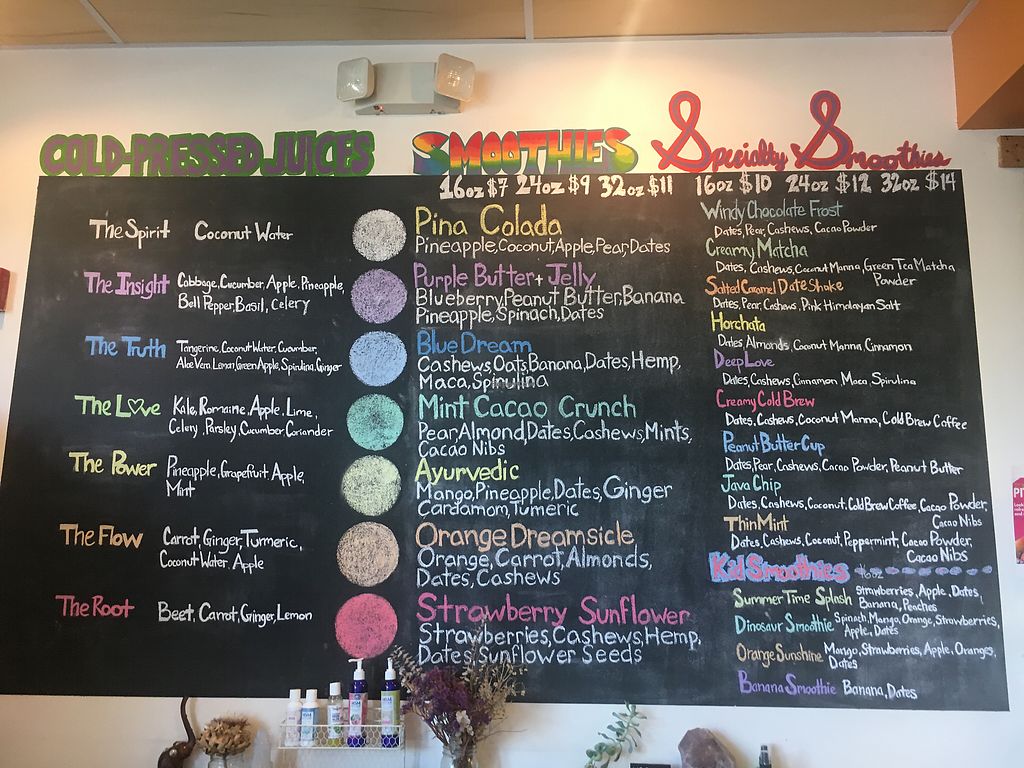 COLD-PRESSED JUICES
The Spirit Coconut Water
The Insight Cabbage, Cucumber, Apple, Pineapple,
Bell Pepper, Basil, Celery
The Truth Tangerine, Coconut Water, Cucumber,
Aloe Vera, Lemon, Green Apple, Spirulina, Ginger
The Love Kale, Romaine, Apple, Lime,
Celery, Parsley, Cucumber, Coriander
The Power Pineapple, Grapefruit, Apple,
Mint
The Flow Carrot, Ginger, Turmeric,
Coconut Water, Apple
The Root Beet, Carrot, Ginger, Lemon
SMOOTHIES
16oz $7 24oz $9 32oz $11
Pina Colada
Pineapple, Coconut, Apple, Pear, Dates
Purple Butter + Jelly
Blueberry, Peanut Butter, Banana
Pineapple, Spinach, Dates
Blue Dream
Cashews, Oats, Banana, Dates, Hemp,
Maca, Spirulina
Mint Cacao Crunch
Pear, Almond, Dates, Cashews, Mints,
Cacao Nibs
Ayurvedic
Mango, Pineapple, Dates, Ginger
Cardamom, Tumeric
Orange Dreamsicle
Orange, Carrot, Almonds,
Dates, Cashews
Strawberry Sunflower
Strawberries, Cashews, Hemp,
Dates, Sunflower Seeds
Specialty Smoothies
16oz $10 24oz $12 32oz $14
Windy Chocolate Frost
Dates, Pear, Cashews, Cacao Powder
Creamy Matcha
Dates, Cashews, Coconut Manna, Green Tea Matcha
Powder
Salted Caramel Date Shake
Dates, Pear, Cashews, Pink Himalayan Salt
Horchata
Dates, Almonds, Coconut Manna, Cinnamon
Deep Love
Dates, Cashews, Cinnamon Maca, Spirulina
Creamy Cold Brew
Dates, Cashews, Coconut Manna, Cold Brew Coffee
Peanut Butter Cup
Dates, Pear, Cashews, Cacao Powder, Peanut Butter
Java Chip
Dates, Cashews, Coconut, Cold Brew Coffee, Cacao Powder,
Cacao Nibs
Thin Mint
Dates, Cashews, Coconut, Peppermint, Cacao Powder,
Cacao Nibs
Kid Smoothies
Summer Time Splash Strawberries, Apple, Dates,
Banana, Peaches
Dinosaur Smoothie Spinach, Mango, Orange, Strawberries,
Apple, Dates
Orange Sunshine Mango, Strawberries, Apple, Oranges,
Dates
Banana Smoothie Banana, Dates